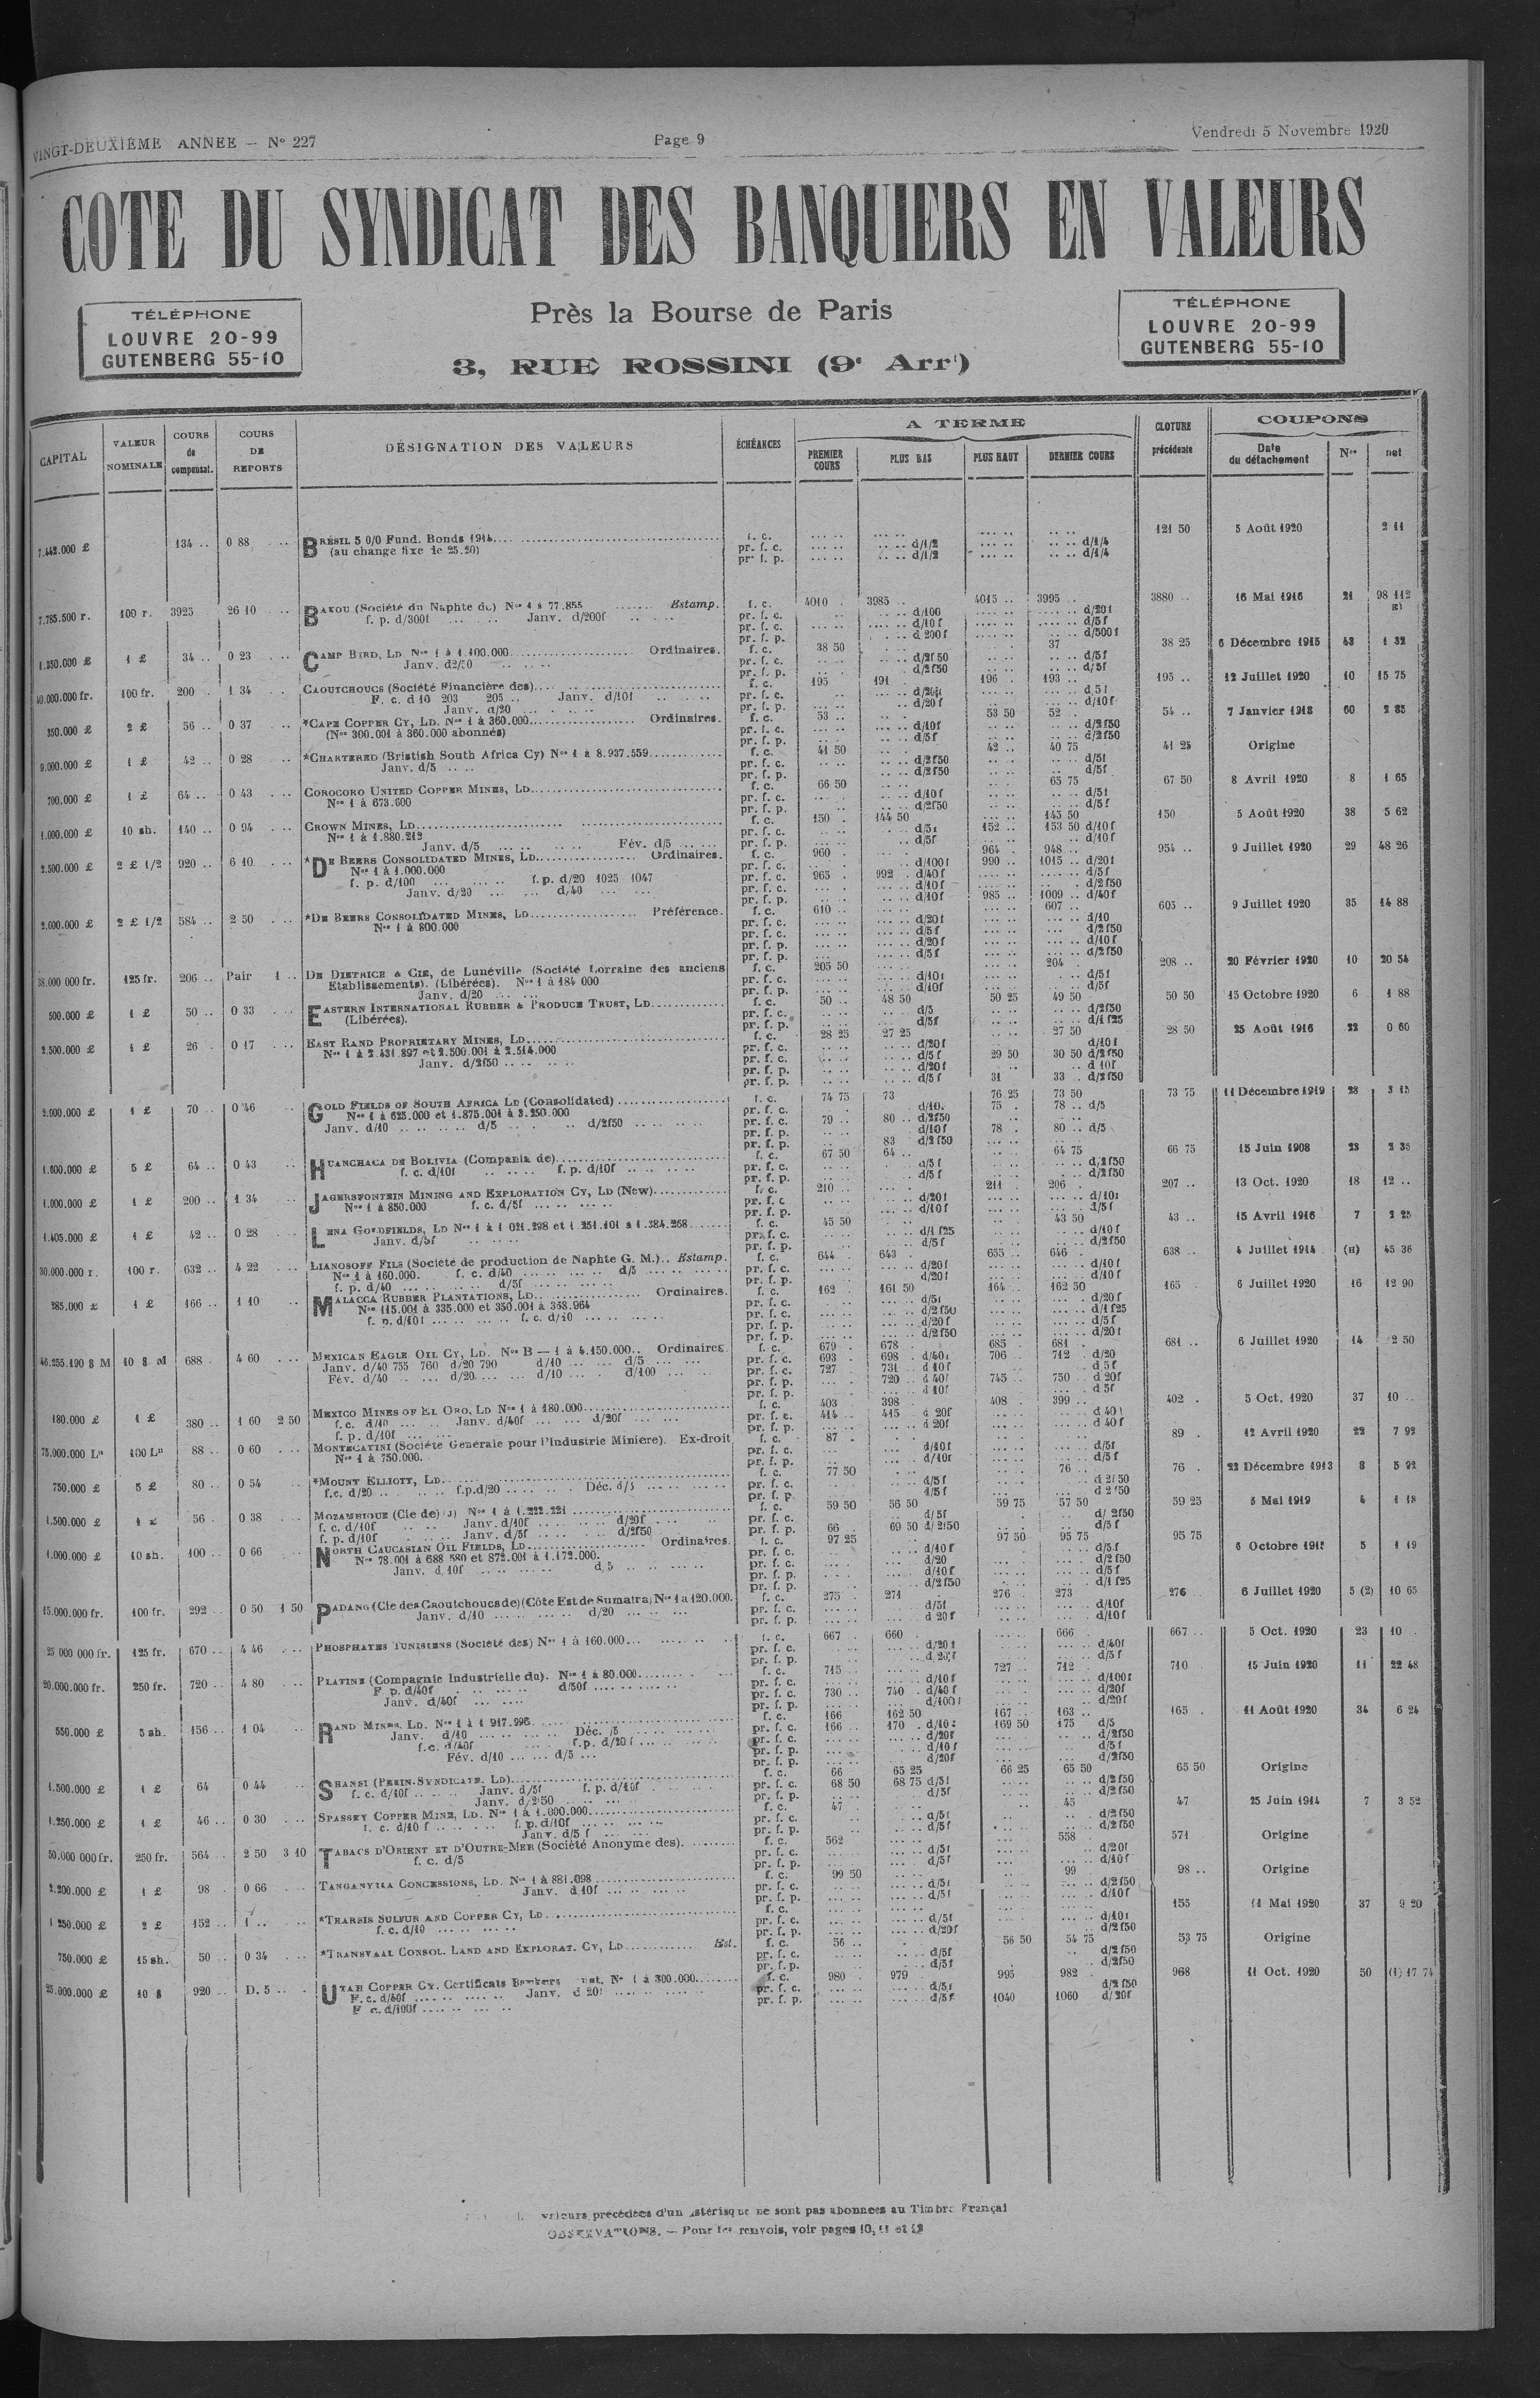 VINGT-DEUXIÈME ANNEE — N° 227 Page 9 Vendredi 5 Novembre 1920
COTE DU SYNDICAT DES BANQUIERS EN VALEURS
TÉLÉPHONE
LOUVRE 20-99
GUTENBERG 55-10
Près la Bourse de Paris
3, RUE ROSSINI (9e Arrt)
TÉLÉPHONE
LOUVRE 20-99
GUTENBERG 55-10
CAPITAL VALEUR NOMINALE COURS de compensat. COURS DE REPORTS DÉSIGNATION DES VALEURS ÉCHÉANCES A TERME PREMIER COURS PLUS BAS PLUS HAUT DERNIER COURS CLOTURE précédente COUPONS Date du détachement Nos net
7.442.000 £ 134 .. 0 88 BRÉSIL 5 0/0 Fund. Bonds 1914 f. c. 121 50 5 Août 1920 2 11
(au change fixe de 25.20) pr. f. c. d/1/2 d/1/4
pr. f. p. d/1/2 d/1/4
7.785.500 r. 100 r. 3925 26 10 BAKOU (Société du Naphte de) Nos 1 à 77.855 Estamp. f. c. 4010 3985 4015 3995 3880 16 Mai 1916 21 98 112
f. p. d/300f Janv. d/200f pr. f. c. d/100 d/20f
pr. f. c. d/10f d/5f
pr. f. p. d 200f d/500f
1.350.000 £ 1 £ 34 .. 0 23 CAMP BIRD, LD Nos 1 à 1.100.000 Ordinaires. f. c. 38 50 37 38 25 6 Décembre 1915 43 1 32
Janv. d2/50 pr. f. c. d/2f50 d/5f
pr. f. p. d/2f50 d/5f
40.000.000 fr. 100 fr. 200 1 34 CAOUTCHOUCS (Société Financière des) f. c. 195 191 196 193 195 12 Juillet 1920 10 15 75
F. c. d 10 203 205 Janv. d/10f pr. f. c. d 5f
Janv. d/20 pr. f. p. d/20f d/10f
350.000 £ 2 £ 56 .. 0 37 *CAPE COPPER CY, LD. Nos 1 à 360.000 Ordinaires. f. c. 53 53 50 52 54 7 Janvier 1918 60 2 85
(Nos 300.001 à 360.000 abonnés) pr. f. c. d/10f d/2f50
pr. f. p. d/5f d/2f50
9.000.000 £ 1 £ 42 .. 0 28 *CHARTERED (Bristish South Africa Cy) Nos 1 à 8.937.559 f. c. 41 50 42 40 75 41 25 Origine
Janv. d/5 pr. f. c. d/2f50 d/5f
pr. f. p. d/2f50 d/5f
700.000 £ 1 £ 64 .. 0 43 COROCORO UNITED COPPER MINES, LD f. c. 66 50 65 75 67 50 8 Avril 1920 8 1 65
Nos 1 à 673.600 pr. f. c. d/10f d/5f
pr. f. p. d/2f50 d/5f
1.000.000 £ 10 sh. 140 .. 0 94 CROWN MINES, LD f. c. 150 144 50 145 50 150 5 Août 1920 38 5 62
Nos 1 à 1.880.212 pr. f. c. d/5f 152 153 50 d/10f
Janv. d/5 Fév. d/5 pr. f. p. d/5f d/10f
2.500.000 £ 2 £ 1/2 920 .. 6 10 *DE BEERS CONSOLIDATED MINES, LD Ordinaires. f. c. 960 964 948 954 9 Juillet 1920 29 48 26
Nos 1 à 1.000.000 pr. f. c. d/100f 990 1015 d/20f
f. p. d/100 f.p. d/20 1025 1047 pr. f. c. 965 992 d/40f d/5f
Janv. d/20 d/40 pr. f. c. d/10f d/2f50
pr. f. p. d/10f 985 1009 d/40f
2.000.000 £ 2 £ 1/2 584 .. 2 50 *DE BEERS CONSOLIDATED MINES, LD Préférence. f. c. 610 607 605 9 Juillet 1920 35 14 88
Nos 1 à 800.000 pr. f. c. d/20f d/10
pr. f. c. d/5f d/2f50
pr. f. p. d/20f d/10f
pr. f. p. d/5f d/2f50
38.000 000 fr. 125 fr. 206 .. Pair 1 .. DE DIETRICH & CIE, de Lunéville (Société Lorraine des anciens f. c. 205 50 204 208 20 Février 1920 10 20 54
Etablissements). (Libérées). Nos 1 à 184 000 pr. f. c. d/10f d/5f
Janv. d/20 pr. f. p. d/10f d/5f
500.000 £ 1 £ 50 .. 0 33 EASTERN INTERNATIONAL RUBBER & PRODUCE TRUST, LD f. c. 50 48 50 50 25 49 50 50 50 15 Octobre 1920 6 1 88
(Libérées). pr. f. c. d/5 d/2f50
pr. f. p. d/5f d/1f25
2.500.000 £ 1 £ 26 0 17 EAST RAND PROPRIETARY MINES, LD f. c. 28 25 27 25 27 50 28 50 25 Août 1916 22 0 60
Nos 1 à 2.431.897 et 2.500.001 à 2.514.000 pr. f. c. d/20f d/10f
Janv. d/2f50 pr. f. c. d/5f 29 50 30 50 d/2f50
pr. f. p. d/20f d 10f
pr. f. p. d/5f 31 33 d/2f50
2.000.000 £ 1 £ 70 .. 0 46 GOLD FIELDS OF SOUTH AFRICA LD (Consolidated) f. c. 74 75 73 76 25 73 50 73 75 11 Décembre 1919 23 3 15
Nos 1 à 625.000 et 1.875.001 à 3.250.000 pr. f. c. d/10 75 78 d/5
Janv. d/10 d/5 d/2f50 pr. f. c. 79 80 d/2f50
pr. f. p. d/10f 78 80 d/5
pr. f. p. 83 d/2f50
1.600.000 £ 5 £ 64 .. 0 43 HUANCHACA DE BOLIVIA (Compania de) f. c. 67 50 64 64 75 66 75 15 Juin 1908 23 2 35
f. c. d/10f f. p. d/10f pr. f. c. d/5f d/2f50
pr. f. p. d/5f d/2f50
1.000.000 £ 1 £ 200 .. 1 34 JAGERSFONTEIN MINING AND EXPLORATION CY, LD (New) f. c. 210 211 206 207 13 Oct. 1920 18 12 ..
Nos 1 à 850.000 f. c. d/5f pr. f. c. d/20f d/10f
pr. f. p. d/10f d/5f
1.405.000 £ 1 £ 42 .. 0 28 LENA GOLDFIELDS, LD Nos 1 à 1 021.298 et 1.251.101 à 1.384.258 f. c. 45 50 43 50 43 15 Avril 1916 7 2 25
Janv. d/5f pr. f. c. d/1f25 d/10f
pr. f. p. d/5f d/2f50
30.000.000 r. 100 r. 632 .. 4 22 LIANOSOFF FILS (Société de production de Naphte G. M.) Estamp. f. c. 644 643 655 646 638 4 Juillet 1914 (11) 45 36
Nos 1 à 160.000. f. c. d/40 d/5 pr. f. c. d/20f d/10f
f. p. d/40 d/5f pr. f. p. d/20f d/10f
285.000 £ 1 £ 166 .. 1 10 MALACCA RUBBER PLANTATIONS, LD Ordinaires. f. c. 162 161 50 164 162 50 165 6 Juillet 1920 16 12 90
Nos 115.001 à 335.000 et 350.001 à 368.964 pr. f. c. d/5f d/20f
f. p. d/10f f. c. d/10 pr. f. c. d/2f50 d/1f25
pr. f. p. d/20f d/5f
pr. f. p. d/2f50 d/20f
46.255.190 $ M 10 $ M 688 4 60 MEXICAN EAGLE OIL CY, LD. Nos B — 1 à 4.150.000 Ordinaires f. c. 679 678 685 681 681 6 Juillet 1920 14 2 50
Janv. d/40 755 760 d/20 790 d/10 d/5 pr. f. c. 693 698 d/40f 706 712 d/20
Fév. d/40 d/20 d/10 d/100 pr. f. c. 727 731 d 10f d 5f
pr. f. p. 720 d 40f 745 750 d 20f
pr. f. p. d 10f d 5f
180.000 £ 1 £ 380 .. 1 60 2 50 MEXICO MINES OF EL ORO, LD Nos 1 à 180.000 f. c. 403 398 408 399 402 5 Oct. 1920 37 10
f.c. d/10 Janv. d/40f d/20f pr. f. c. 414 415 d 20f d 40f
f. p. d/10f pr. f. p. d 20f d 40f
75.000.000 Ls 100 Ls 88 .. 0 60 MONTECATINI (Société Générale pour l'Industrie Minière). Ex-droit f. c. 87 89 12 Avril 1920 22 7 92
Nos 1 à 750.000. pr. f. c. d/10f d/5f
pr. f. p. d/10f d/5f
750.000 £ 5 £ 80 .. 0 54 *MOUNT ELLIOTT, LD f. c. 77 50 76 76 22 Décembre 1913 8 5 92
f.c. d/20 f.p.d/20 Déc. d/5 pr. f. c. d/5f d 2f50
pr. f. p. d/5f d 2f50
1.500.000 £ 1 £ 56 0 38 MOZAMBIQUE (Cie de) Nos 1 à 1.222.221 f. c. 59 50 56 50 59 75 57 50 59 25 5 Mai 1919 4 1 18
f. c. d/10f Janv. d/10f d/20f pr. f. c. d/5f d/2f50
f. p. d/10f Janv. d/5f d/2f50 pr. f. p. 66 69 50 d/2f50 d/5f
1.000.000 £ 10 sh. 100 .. 0 66 NORTH CAUCASIAN OIL FIELDS, LD Ordinaires. f. c. 97 25 97 50 95 75 95 75 6 Octobre 5 1 19
Nos 78.001 à 688 580 et 872.001 à 1.172.000. pr. f. c. d/10f d/5f
Janv. d 10f d 5 pr. f. c. d/20 d/2f50
pr. f. p. d/10f d/5f
pr. f. p. d/2f50 d/1f25
15.000.000 fr. 100 fr. 292 .. 0 50 1 50 PADANG (Cie des Caoutchoucs de) (Côte Est de Sumatra) Nos 1 à 120.000. f. c. 275 271 276 273 276 6 Juillet 1920 5 (2) 10 65
Janv. d/10 d/20 pr. f. c. d/5f d/10f
pr. f. p. d 20f d/10f
25 000 000 fr. 125 fr. 670 .. 4 46 PHOSPHATES TUNISIENS (Société des) Nos 1 à 160.000 f. c. 667 660 666 667 5 Oct. 1920 23 10
pr. f. c. d/20f d/40f
pr. f. p. d/20f d/5f
20.000.000 fr. 250 fr. 720 .. 4 80 PLATINE (Compagnie Industrielle du). Nos 1 à 80.000 f. c. 715 727 712 710 15 Juin 1920 11 22 48
F. p. d/40f d/50f pr. f. c. d/10f d/100f
Janv. d/40f pr. f. c. 730 740 d/40f d/20f
pr. f. p. d/100f d/20f
550.000 £ 5 sh. 156 .. 1 04 RAND MINES, LD. Nos 1 à 1 917.996 f. c. 166 162 50 167 163 165 11 Août 1920 34 6 24
Janv. d/10 Déc. /5 pr. f. c. 166 170 d/10f 169 50 175 d/5
f.c. d/40f f.p. d/20f pr. f. c. d/20f d/2f50
Fév. d/10 d/5 pr. f. p. d/10f d/5f
pr. f. p. d/20f d/2f50
1.500.000 £ 1 £ 64 0 44 SHANSI (PEKIN-SYNDICATE. LD) f. c. 66 65 25 66 25 65 50 65 50 Origine
f. c. d/10f Janv. d/5f f. p. d/10f pr. f. c. 68 50 68 75 d/5f d/2f50
Janv. d/2f50 pr. f. p. d/5f d/2f50
1.250.000 £ 1 £ 46 .. 0 30 SPASSKY COPPER MINE, LD. Nos 1 à 1.000.000 f. c. 47 45 47 25 Juin 1914 7 3 52
f. c. d/10 f f. p. d/10f pr. f. c. d/5f d/2f50
Janv. d/5 f pr. f. p. d/5f d/2f50
50.000 000 fr. 250 fr. 564 .. 2 50 3 10 TABACS D'ORIENT ET D'OUTRE-MER (Société Anonyme des). f. c. 562 558 571 Origine
f. c. d/5 pr. f. c. d/5f d/20f
pr. f. p. d/5f d/10f
2.200.000 £ 1 £ 98 . 0 66 TANGANYIKA CONCESSIONS, LD. Nos 1 à 881.098 f. c. 99 50 99 98 .. Origine
Janv. d 10f pr. f. c. d/5f d/2f50
pr. f. p. d/5f d/10f
1 250.000 £ 2 £ 152 .. 1 .. *THARSIS SULFUR AND COPPER CY, LD f. c. 155 14 Mai 1920 37 9 20
f. c. d/10 pr. f. c. d/5f d/10f
pr. f. p. d/20f d/2f50
750.000 £ 15 sh. 50 .. 0 34 *TRANSVAAL CONSOL. LAND AND EXPLORAT. CY, LD Est. f. c. 56 56 50 54 75 53 75 Origine
pr. f. c. d/5f d/2f50
pr. f. p. d/5f d/2f50
25.000.000 £ 10 $ 920 .. D. 5 UTAH COPPER CY. Certificats Bankers Nos 1 à 300.000 f. c. 980 979 995 982 968 11 Oct. 1920 50 (1) 17 74
F. c. d/50f Janv. d 20f pr. f. c. d/5f d/2f50
F c. d/100f pr. f. p. d/5f 1040 1060 d/20f
valeurs précédées d'un astérisque ne sont pas abonnées au Timbre Françai
OBSERVATIONS. — Pour les renvois, voir pages 10, 11 et 12